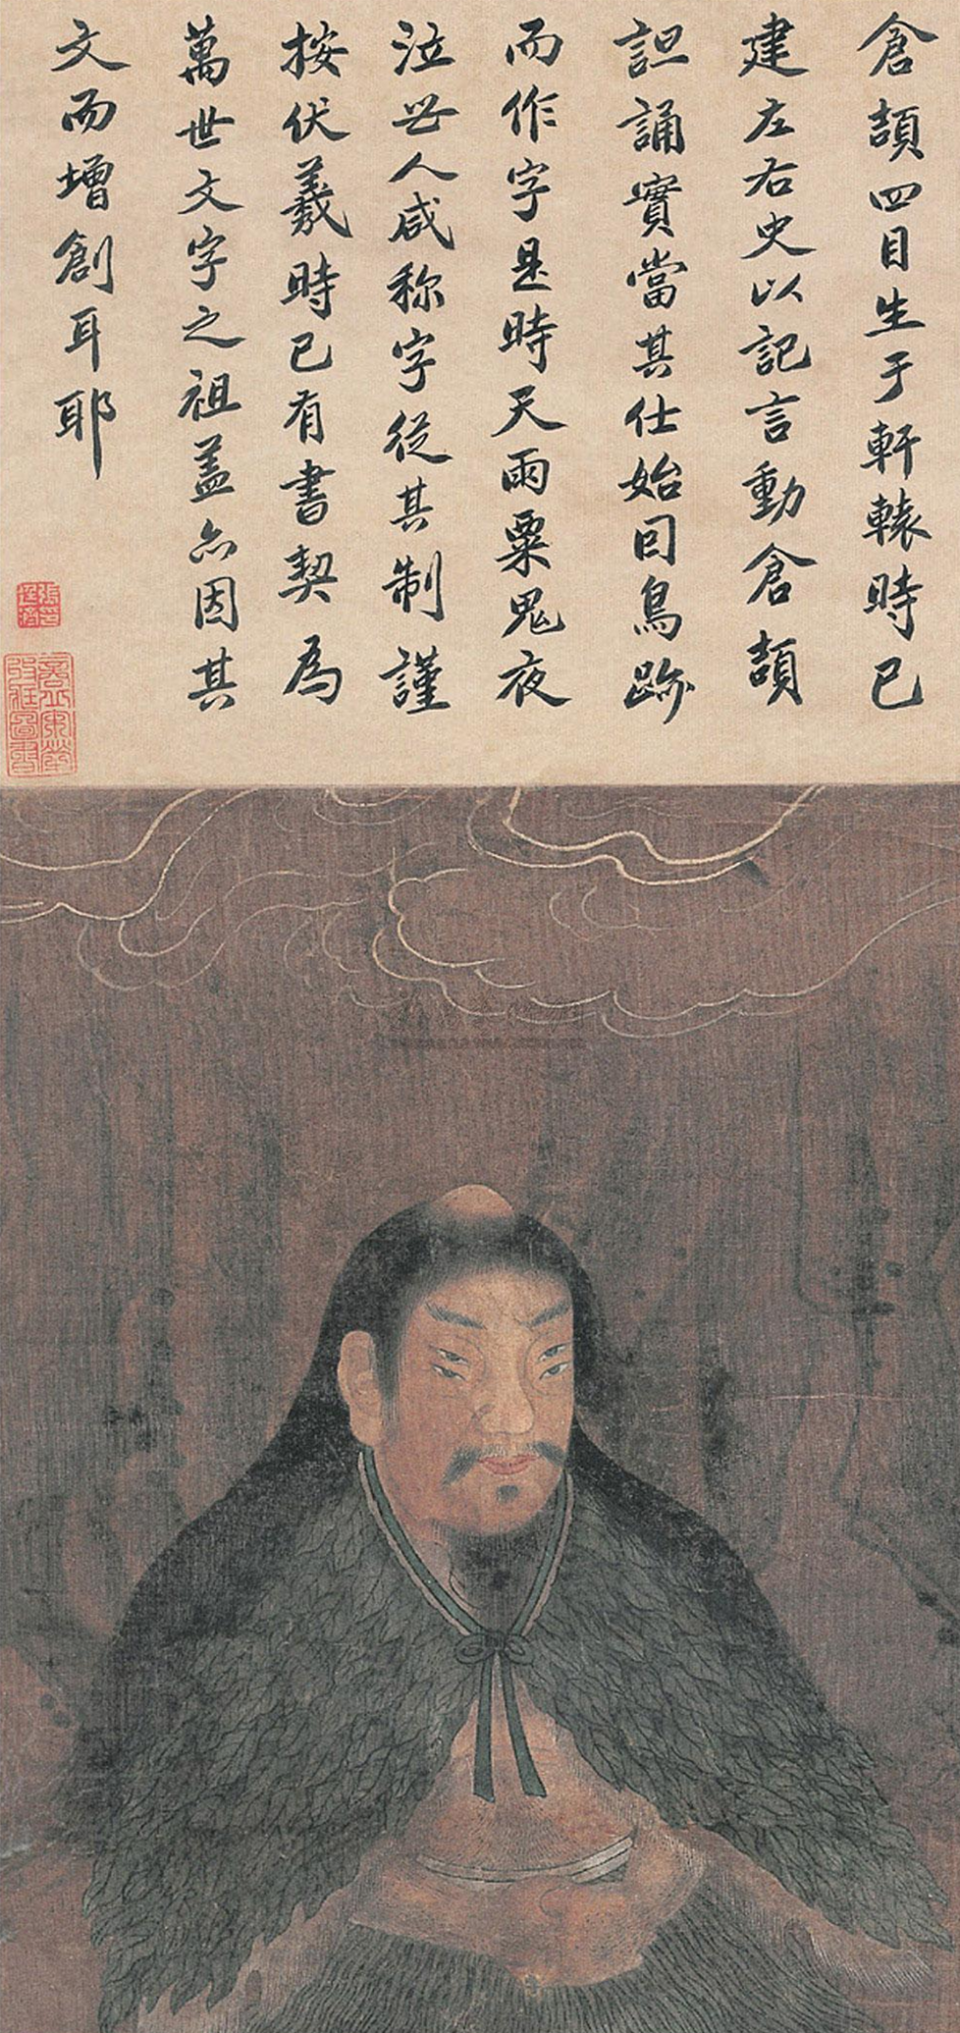 倉頡四目生于軒轅時已
建左右史以記言動倉頡
詚誦實當其仕始囙鳥跡
而作字是時天雨粟鬼夜
泣世人咸称字從其制謹
按伏羲時已有書契為
萬世文字之祖蓋亦因其
文而增創耳耶